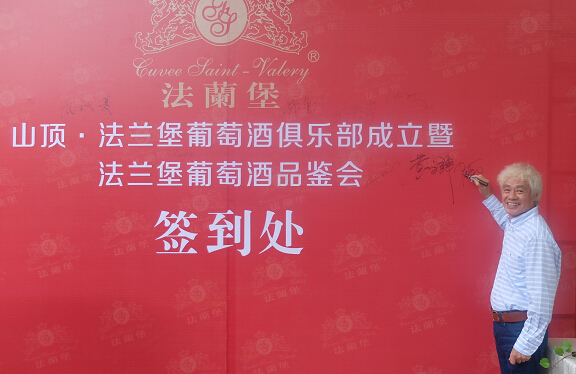 Cuvee Saint-Valery®
法蘭堡
山顶·法兰堡葡萄酒俱乐部成立暨
法兰堡葡萄酒品鉴会
签到处